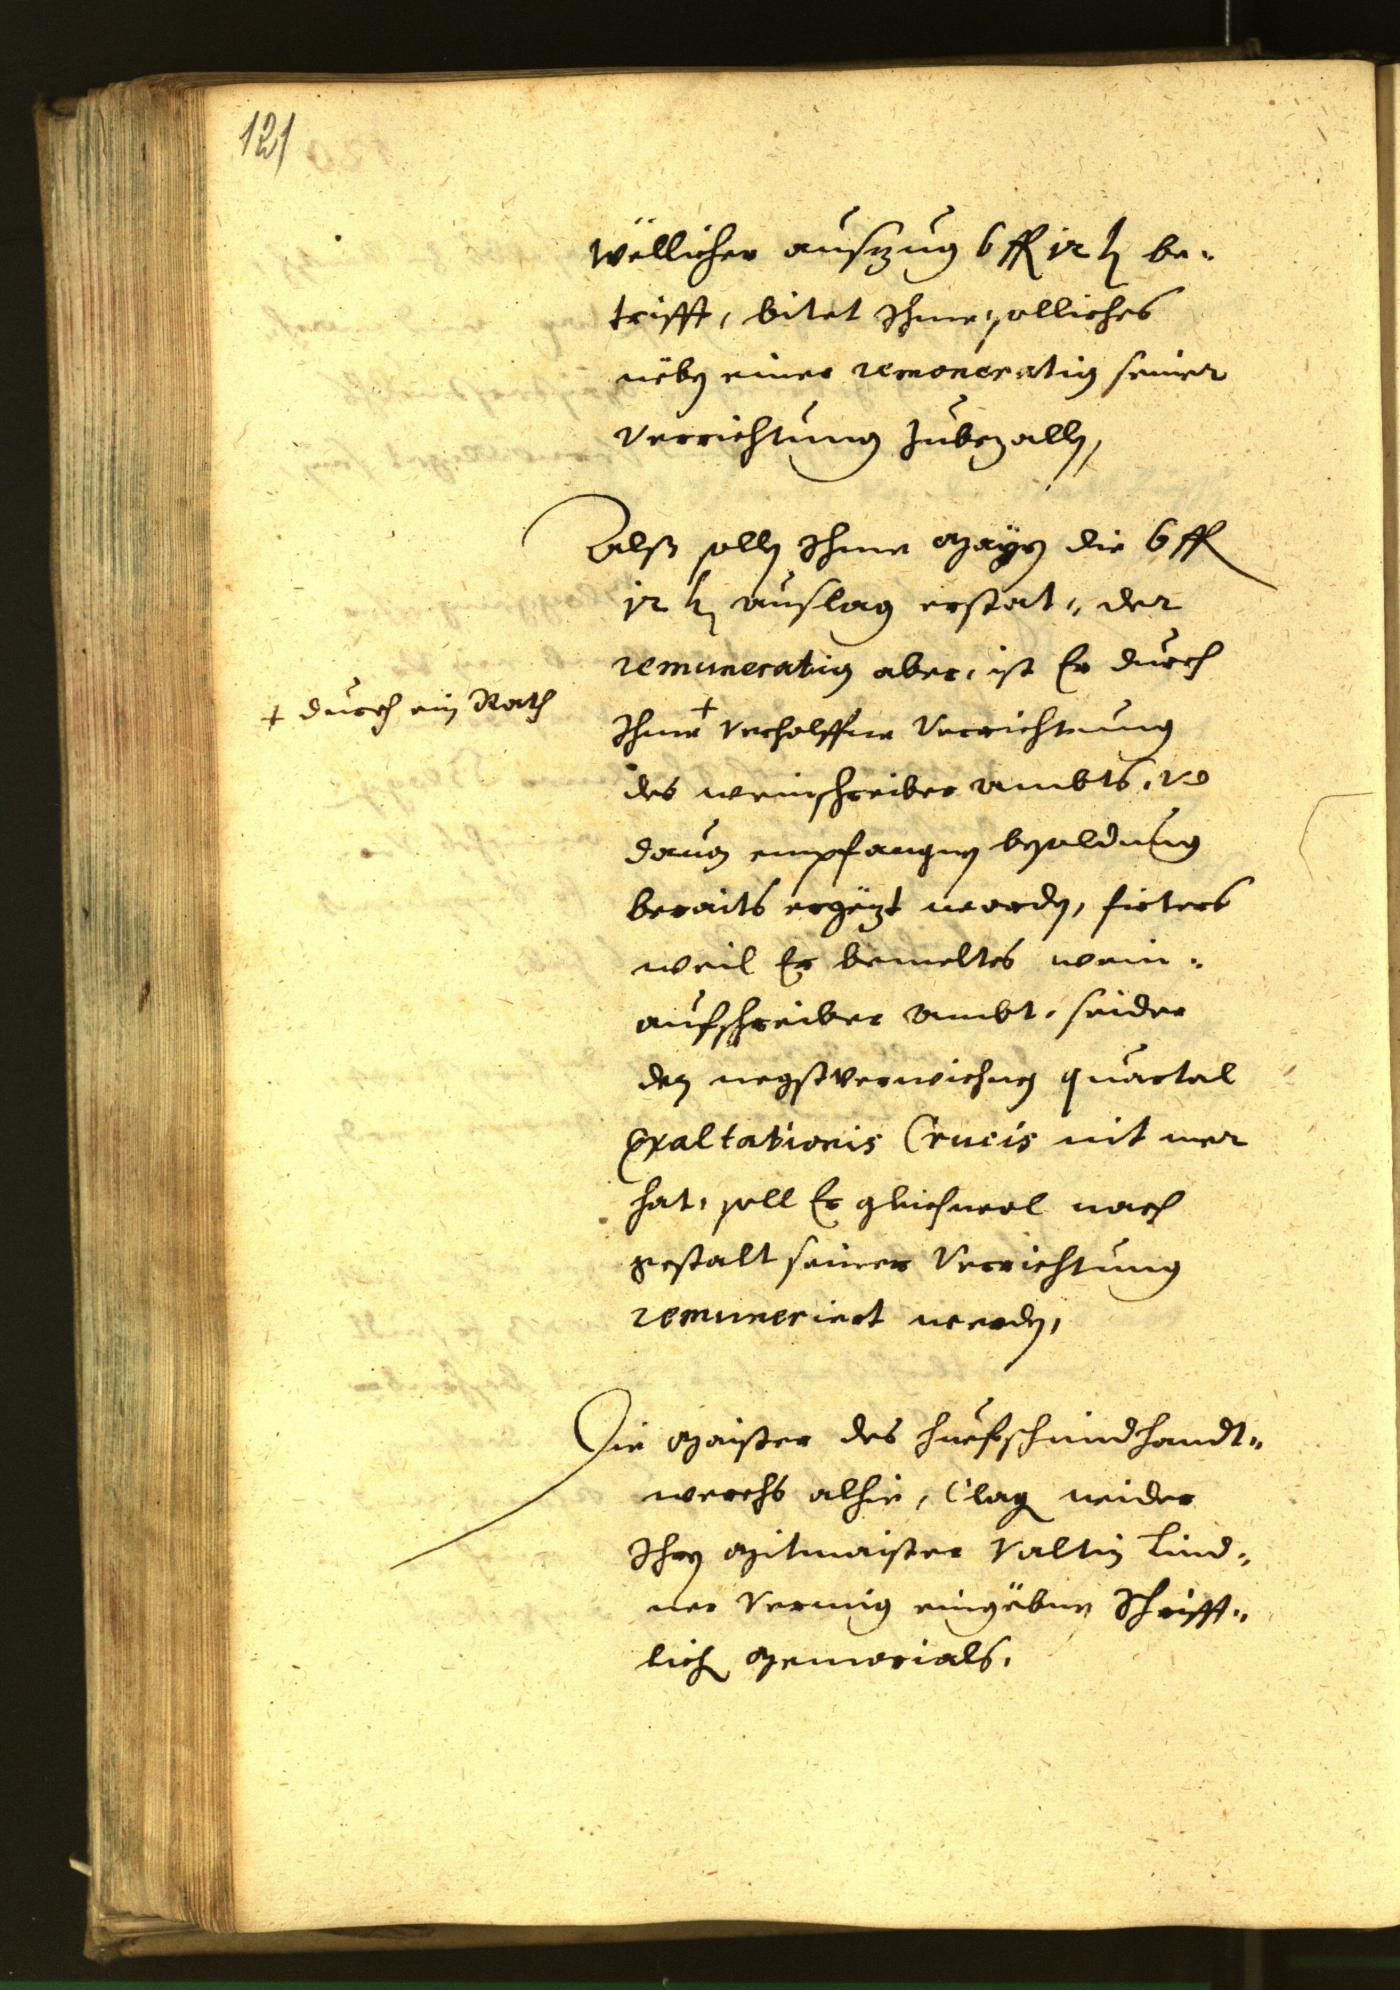 121
wëllicher auszug 6 ff 12 k be¬
trifft, bitet Ihme solliches
nëben einer remoneration seiner
verrichtung zubezallen,
Alß sollen Ihme Mayr die 6 ff
12 k auslag erstat¬ der
remuneration aber, ist Er durch
+ durch ein Rath
Ihme + verholffne verrichtung
des weinschreiber ambts, vnd
dauon empfangnen besoldung
beraits ergëzt worden, firters
weil Er bemeltes wein¬
aufschreiber ambt, seider
den negstverwichnen quartal
Exaltationis Crucis nit mer
hat, soll Er gleichwol nach
gestalt seiner verrichtung
remuneriert werden,
Die Maister des huefschmidhandt¬
werchs alhie, Clagen wider
Ihren Mitmaister Valtin Lind¬
ner vermig eingëbnen Schrifft¬
lichen Memorials.